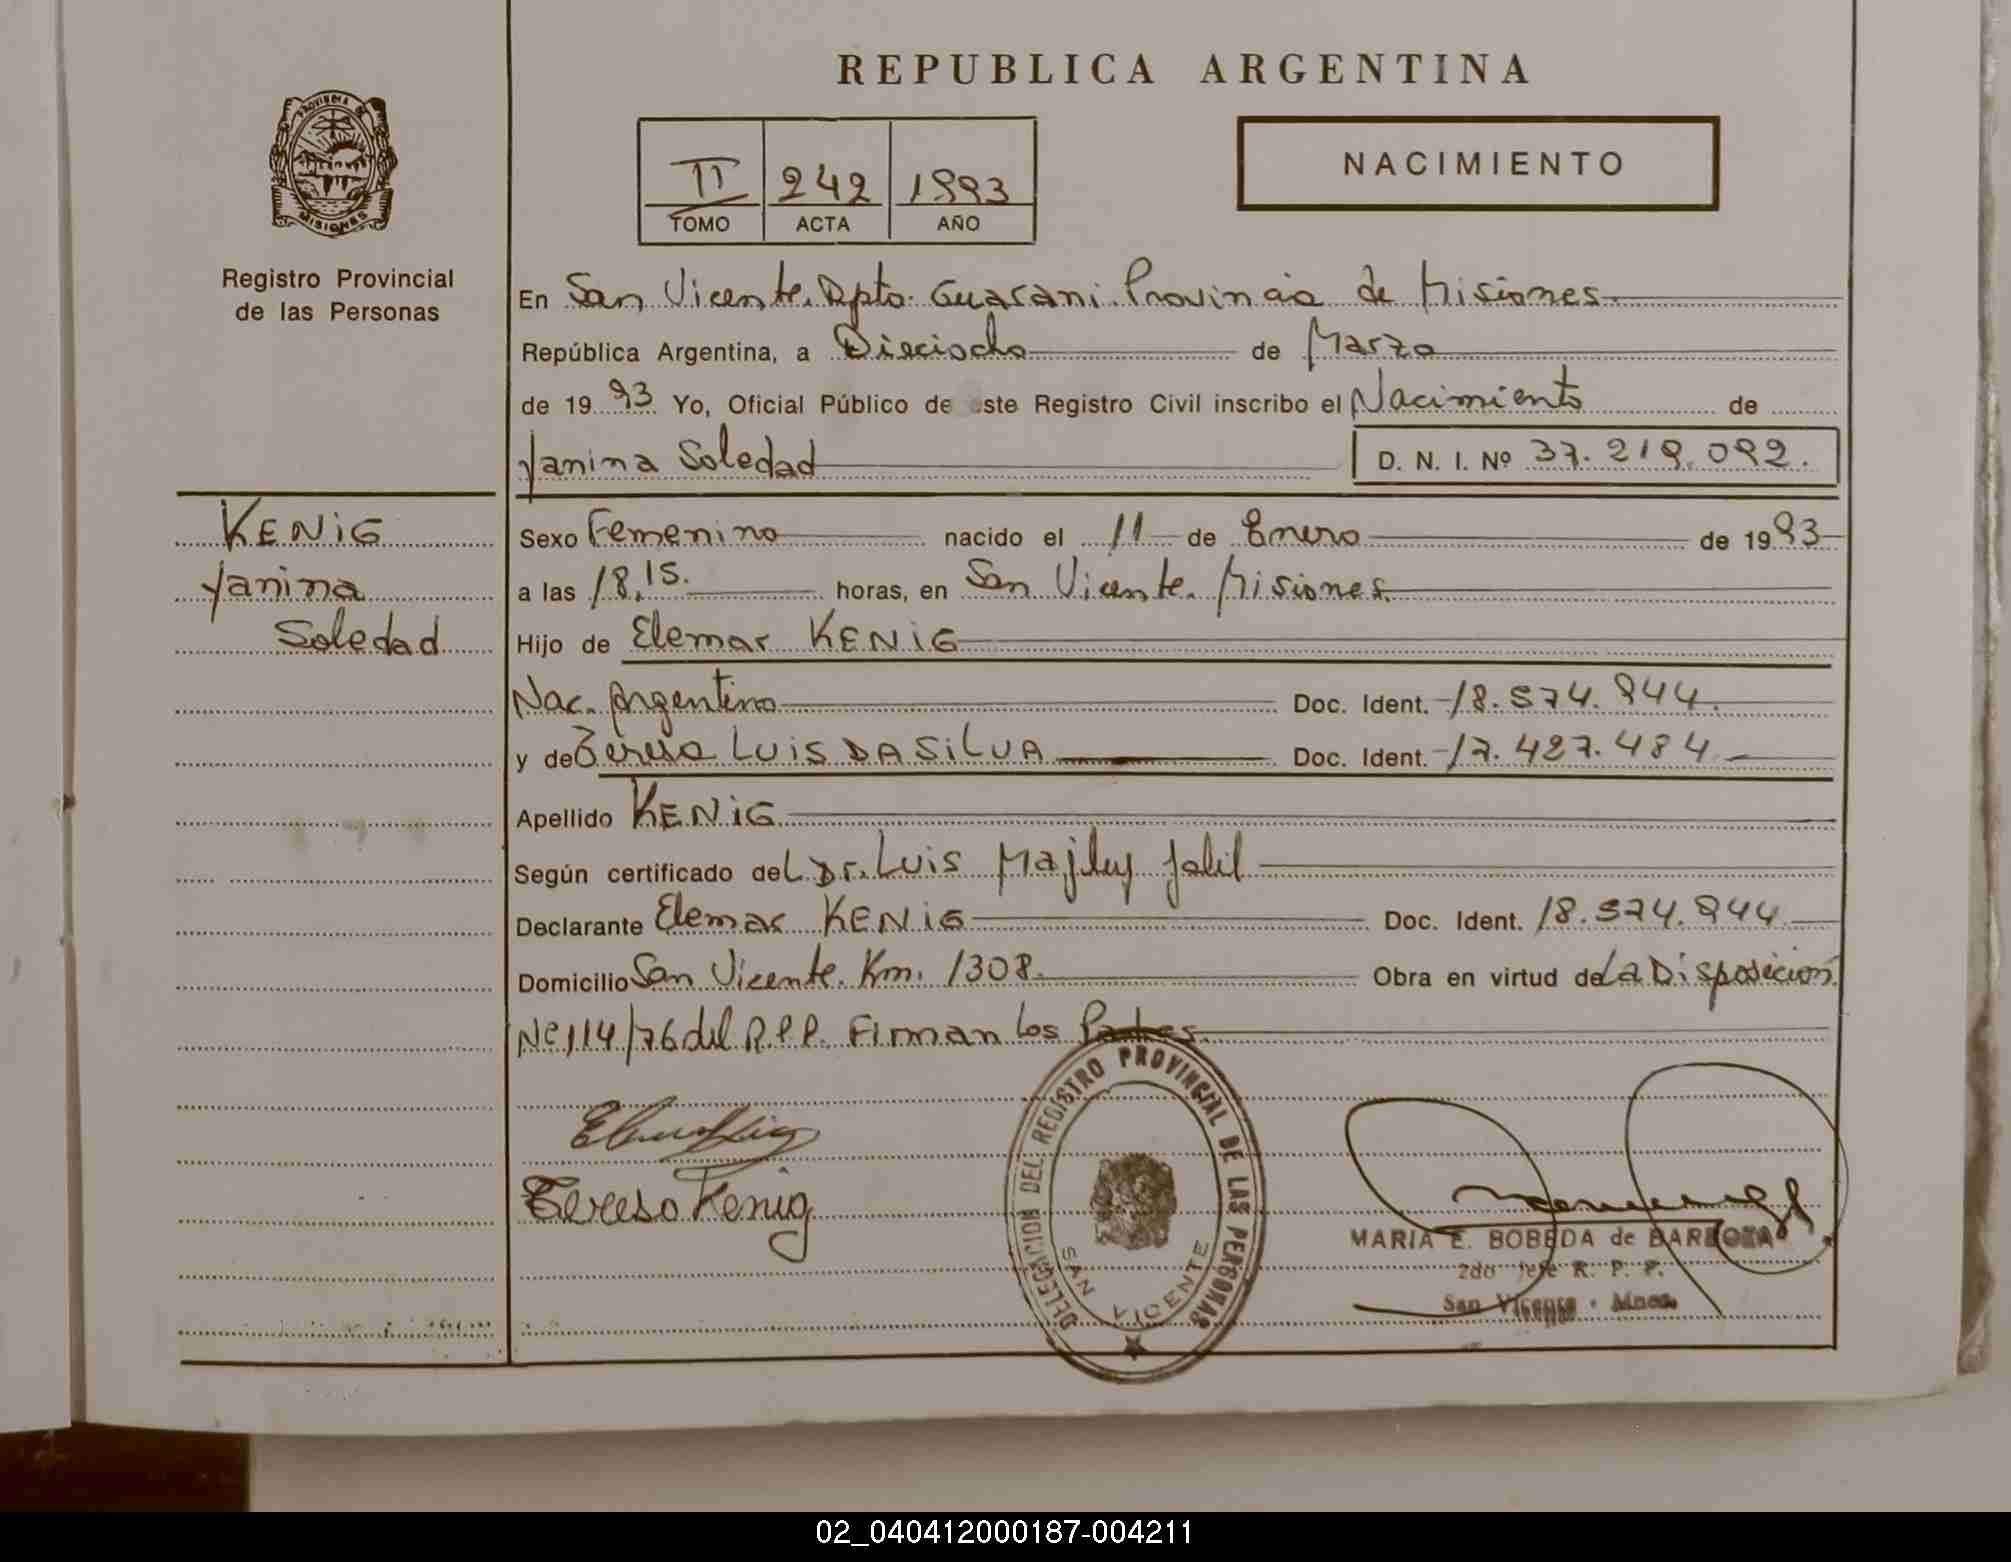 REPUBLICA ARGENTINA
PROVINCIA DE
MISIONES
Registro Provincial
de las Personas
II 242 1993
TOMO ACTA AÑO
NACIMIENTO
En San Vicente. Dpto. Guarani. Provincia de Misiones
República Argentina, a Dieciocho de Marzo
de 19 93 Yo, Oficial Público de este Registro Civil inscribo el Nacimiento de
Yanina Soledad D. N. I. Nº 37.219.092.
KENiG
Yanina
Soledad
Sexo Femenino nacido el 11 de Enero de 19 93
a las 18,15. horas, en San Vicente. Misiones.
Hijo de Elemar KENiG
Nac. Argentino Doc. Ident. 18.574.944.
y de Teresa LUiS DA SiLVA Doc. Ident. 17.427.484.
Apellido KENiG
Según certificado del Dr. Luis Jalil
Declarante Elemar KENiG Doc. Ident. 18.574.944
Domicilio San Vicente. Km. 1308. Obra en virtud de La Disposicion
Nº 114/76 del R.P.P. Firman los Padres.
Teresa Kenig
DELEGACION DEL REGISTRO PROVINCIAL DE LAS PERSONAS
SAN VICENTE
MARIA E. BOBEDA de BARBOZA
2do Jefe R. P. P.
San Vicente - Mnes.
02_040412000187-004211